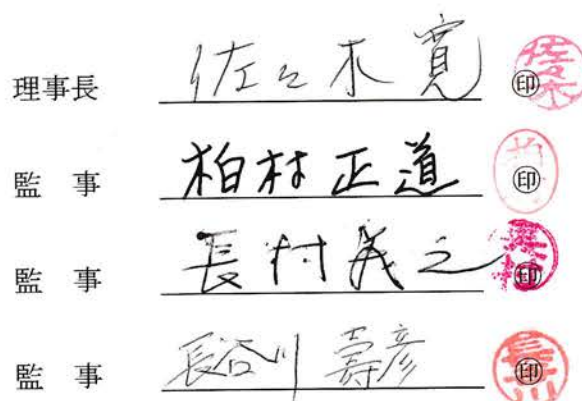 理事長 佐々木 寛 ㊞
監 事 柏村正道 ㊞
監 事 長村義之 ㊞
監 事 長谷川 壽彦 ㊞